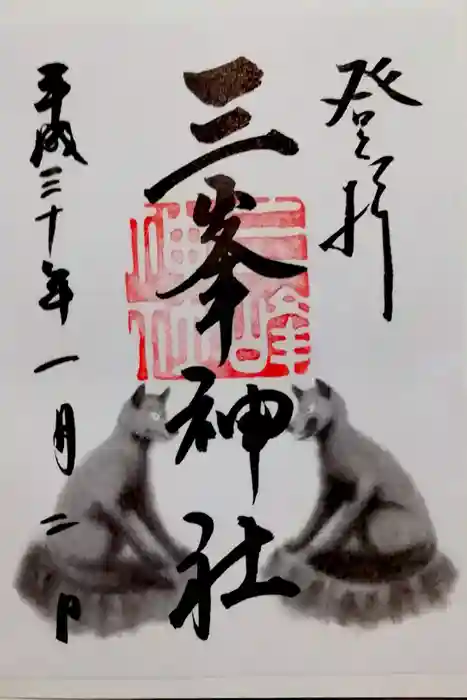 登拝
三峯神社
三峰神社
平成三十年一月二日